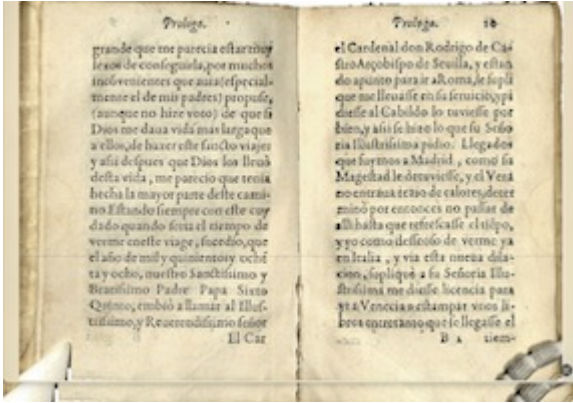 Prologo.
grande que me parecia estar muy
lexos de conseguirla, por muchos
incōvenientes que auia (especial-
mente el de mis padres) propuse,
(aunque no hize voto) de que si
Dios me daua vida mas larga que
a ellos, de hazer este sancto viaje:
y assi despues que Dios los lleuò
desta vida, me parecio que tenia
hecha la mayor parte deste cami-
no. Estando siempre con este cuy
dado quando seria el tiempo de
verme en este viage, sucedio, que
el año de mil y quinientos y ochē
ta y ocho, nuestro Sanctissimo y
Beatissimo Padre Papa Sixto
Quinto, embiò a llamar al Illus-
trissimo, y Reuerendissimo señor
El Car
Prologo. 10
el Cardenal don Rodrigo de Ca-
stro Arçobispo de Seuilla, y estan
do apunto para ir a Roma, le supli
que me lleuasse en su seruicio, y pi
diesse al Cabildo lo tuuiesse por
bien, y assi se hizo lo que su Seño
ria Illustrissima pidio. Llegados
que fuymos a Madrid, como su
Magestad le detuuiesse, y el Vera
no entraua de calores, deter
minò por entonces no passar de
alli hasta que refrescasse el tiēpo,
y yo como desseoso de verme ya
en Italia, y via esta nueua dila-
cion, supliquè a su Señoria Illu-
strissima me diesse licencia para
yr a Venecia a estampar vnos li-
bros entretanto que se llegasse el
B 2 tiem-